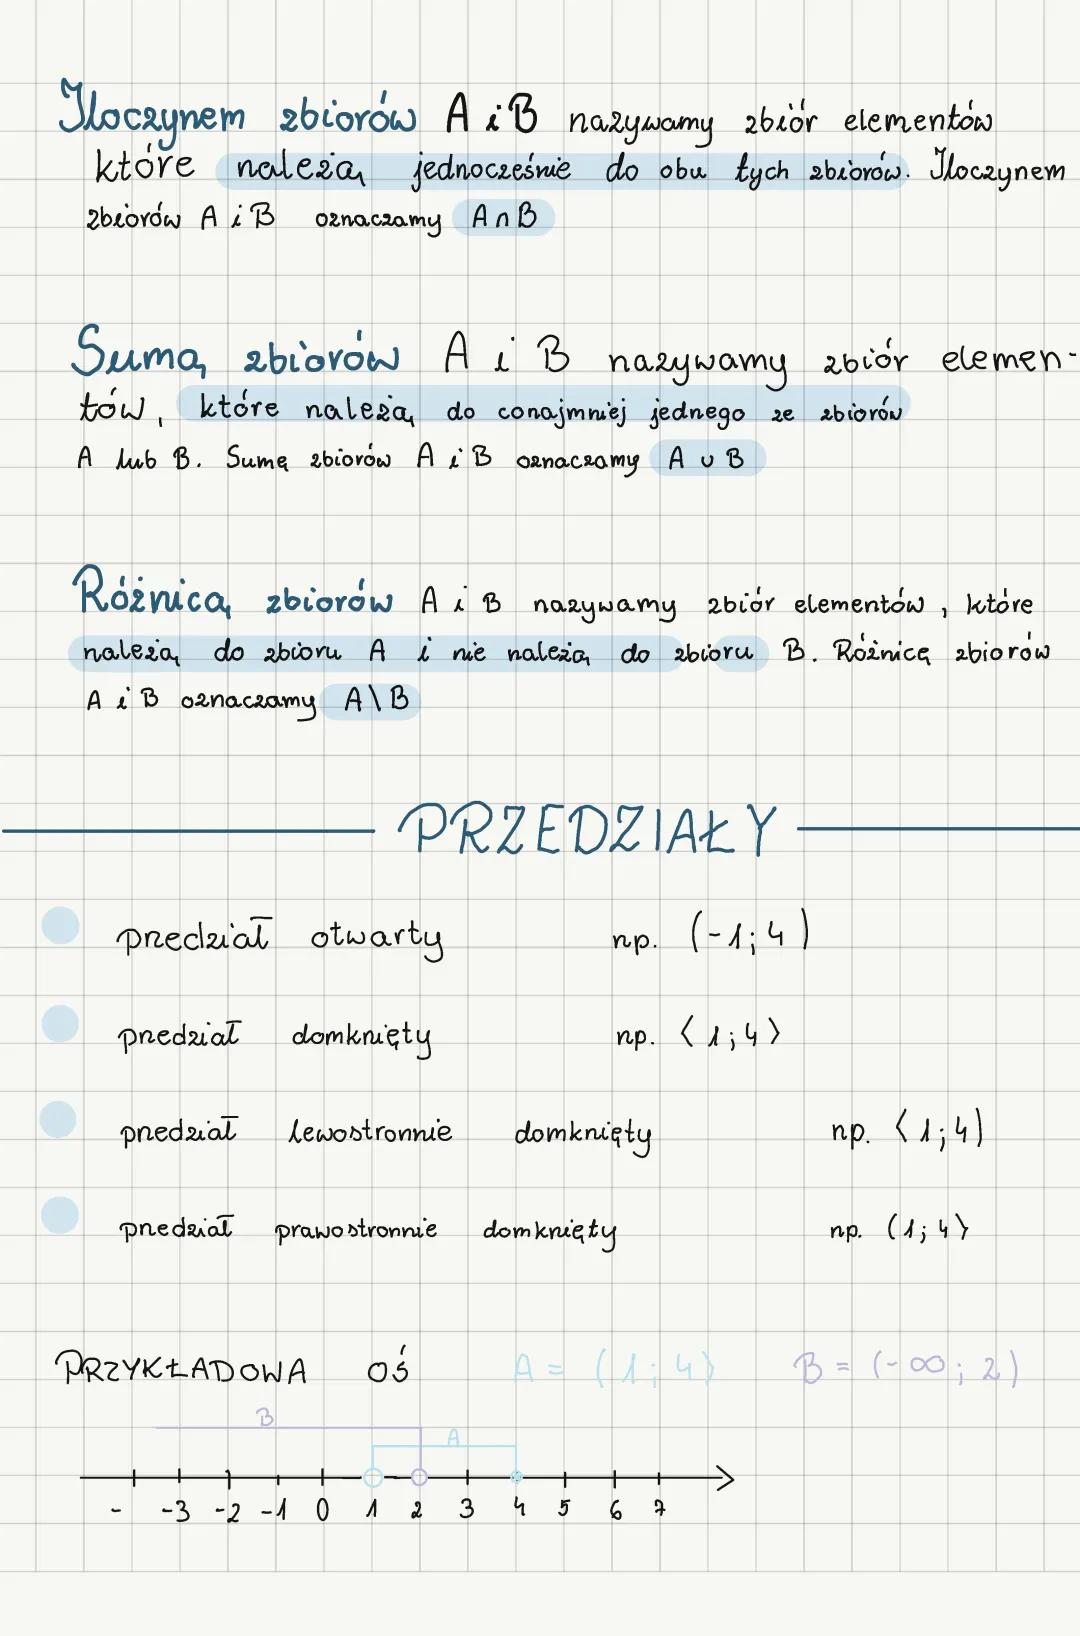 Iloczynem zbiorów A i B nazywamy zbiór elementów
które należą jednocześnie do obu tych zbiorów. Iloczynem
zbiorów A i B oznaczamy A∩B
Sumą zbiorów A i B nazywamy zbiór elemen-
tów, które należą do conajmniej jednego ze zbiorów
A lub B. Sumę zbiorów A i B oznaczamy A ∪ B
Różnicą zbiorów A i B nazywamy zbiór elementów, które
należą do zbioru A i nie należą do zbioru B. Różnicę zbiorów
A i B oznaczamy A\B
PRZEDZIAŁY
przedział otwarty np. (-1;4)
przedział domknięty np. ⟨1;4⟩
przedział lewostronnie domknięty np. ⟨1;4)
przedział prawostronnie domknięty np. (1;4⟩
PRZYKŁADOWA OŚ A = (1;4⟩ B = (-∞;2)
B
A
- -3 -2 -1 0 1 2 3 4 5 6 7